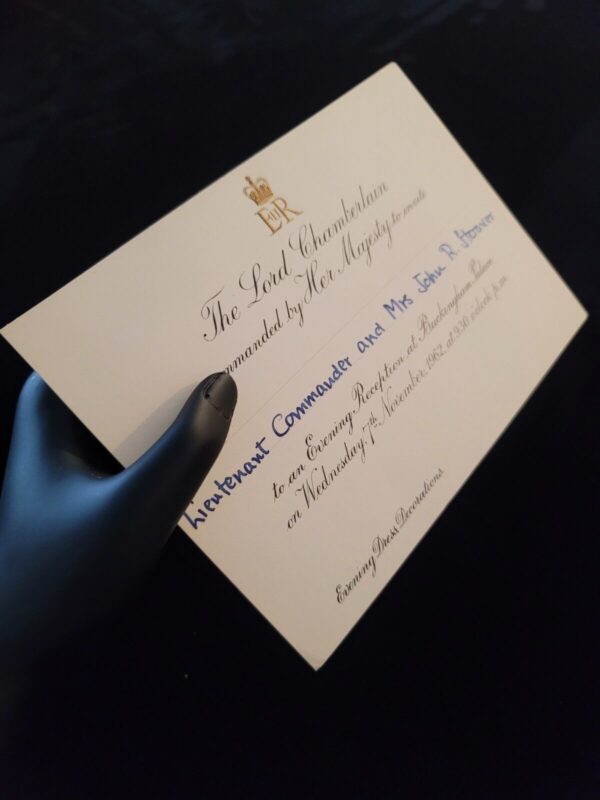 EIIR
The Lord Chamberlain
mmanded by Her Majesty to invite
Lieutenant Commander and Mrs John R. Hoover
to an Evening Reception at Buckingham Palace
on Wednesday, 7th November, 1962, at 9.30 o'clock p.m.
Evening Dress Decorations